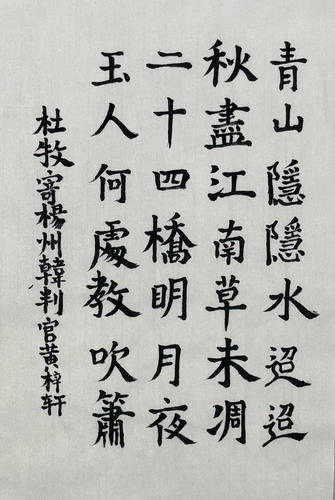 青山隱隱水迢迢
秋盡江南草未凋
二十四橋明月夜
玉人何處教吹簫
杜牧寄楊州韓判官黄梓轩